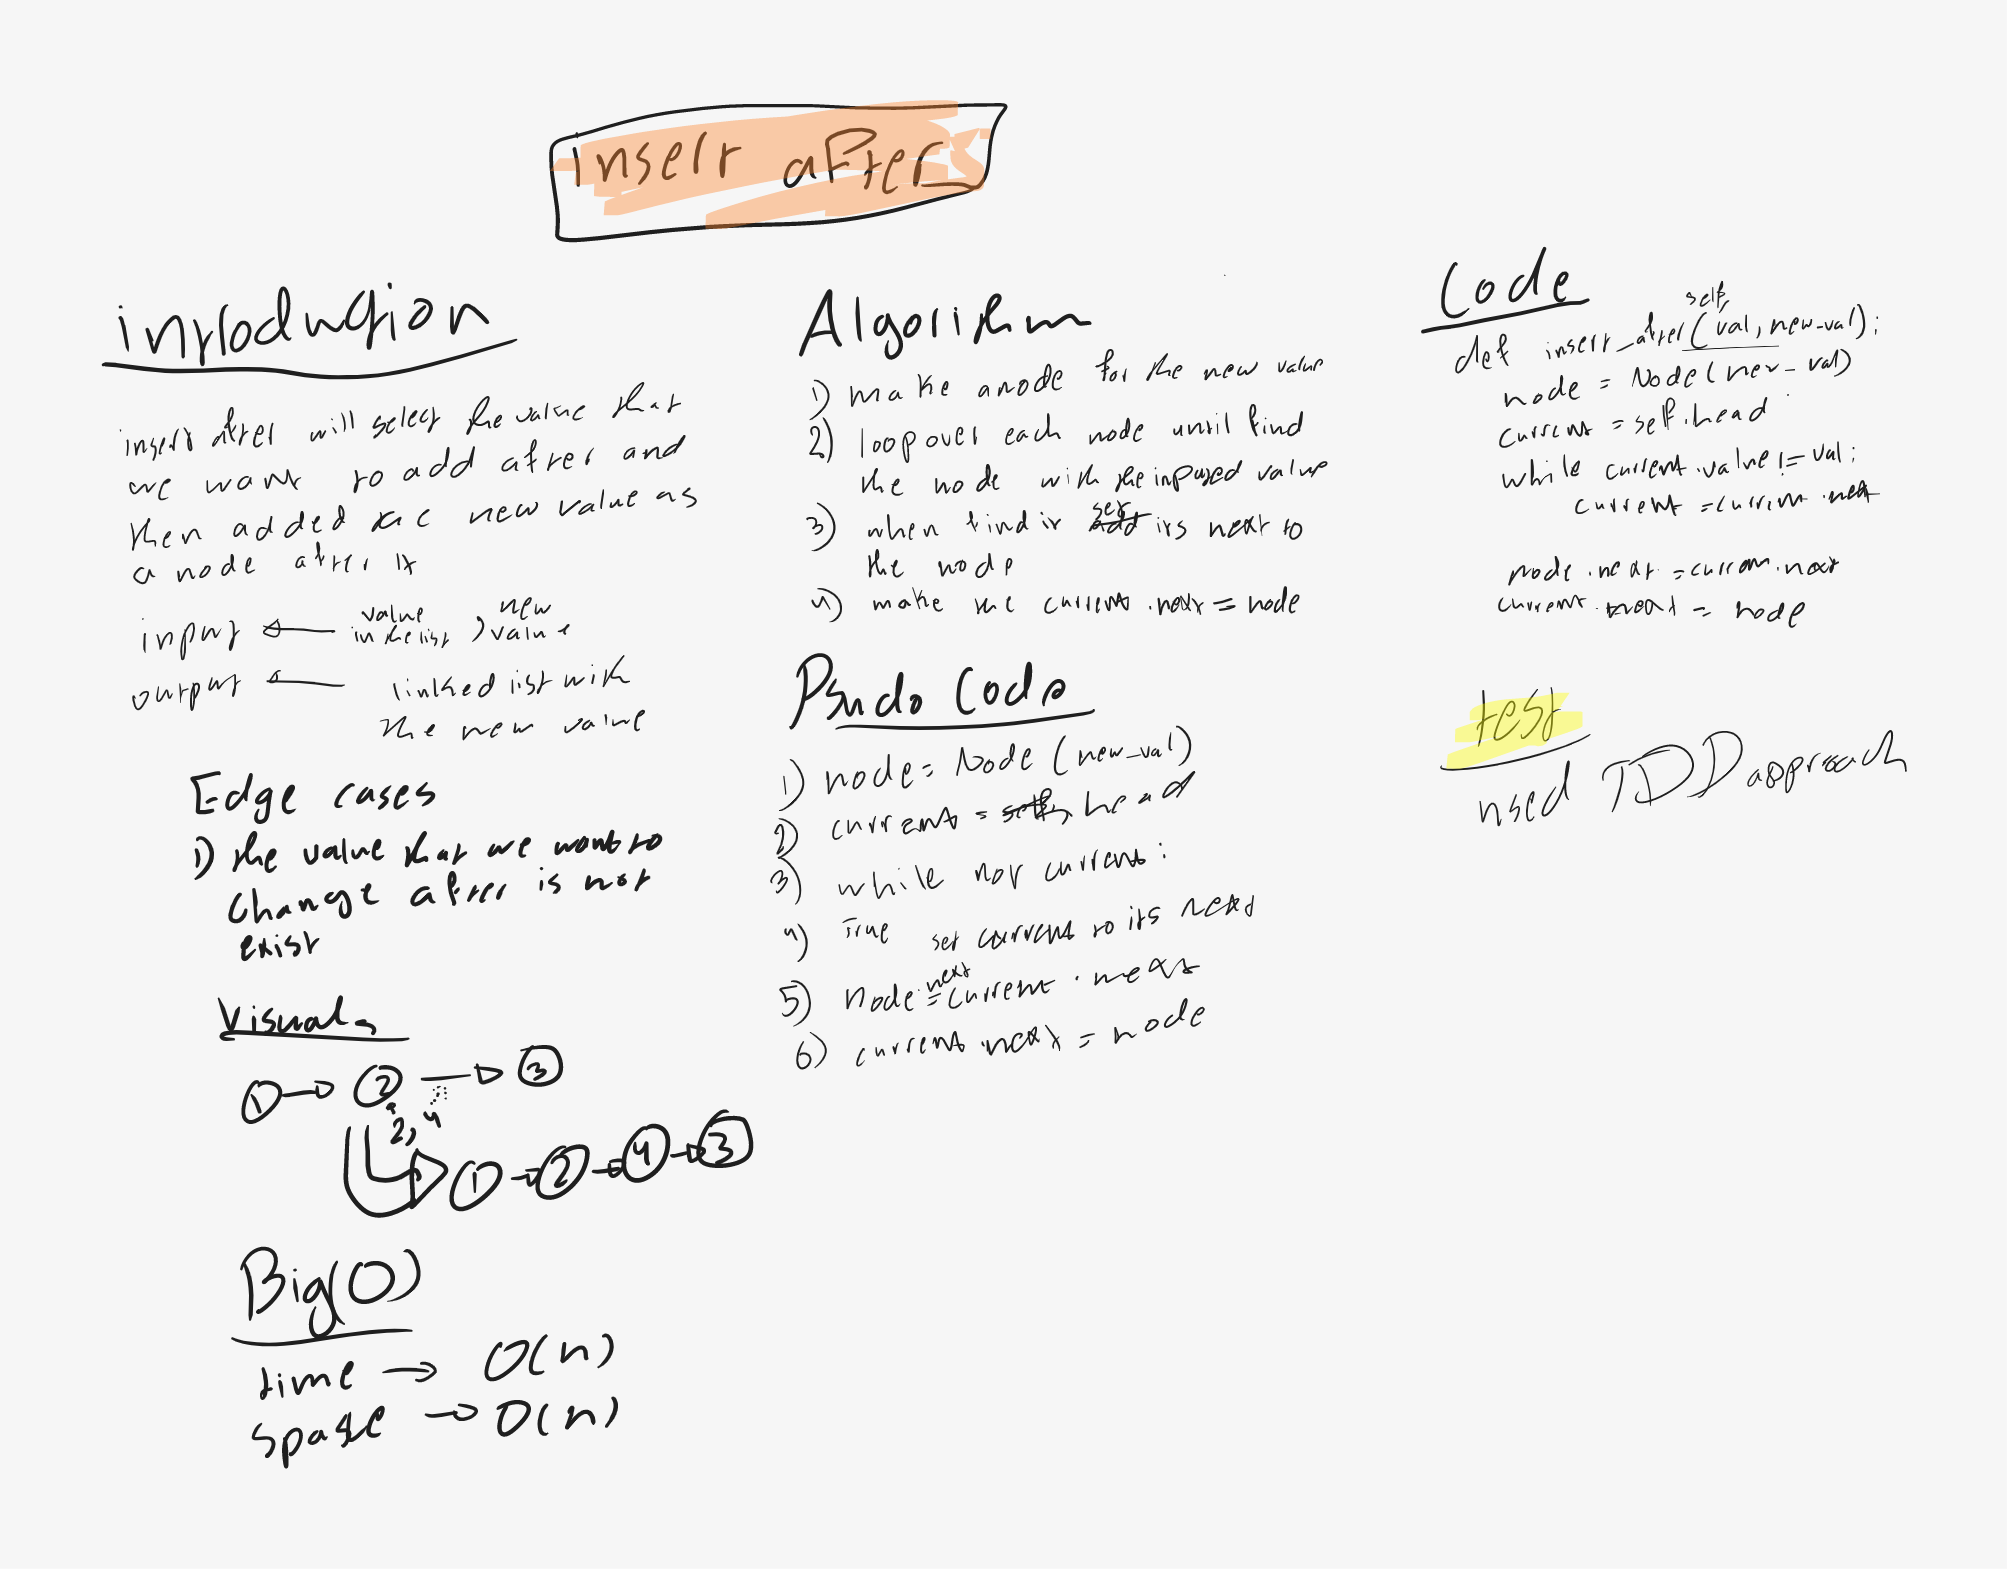 insert after
introduction
insert after will select the value that
we want to add after and
then added the new value as
a node after it
input ← value in the list , new value
output ← linked list with
the new value
Edge cases
1) the value that we want to
change after is not
exist
Visuals
1 → 2 → 3
2, 4
1 → 2 → 4 → 3
Big(O)
time → O(n)
space → O(n)
Algorithm
1) make a node for the new value
2) loop over each node until find
the node with the inputed value
3) when find it set its next to
the node
4) make the current.next = node
Psudo Code
1) node = Node (new_val)
2) current = head
3) while not current:
4) True set current to its next
5) Node.next = current.next
6) current.next = node
Code
def insert_after(self, val, new_val):
node = Node(new_val)
current = self.head
while current.value != val:
current = current.next
node.next = current.next
current.next = node
test
used TDD approach